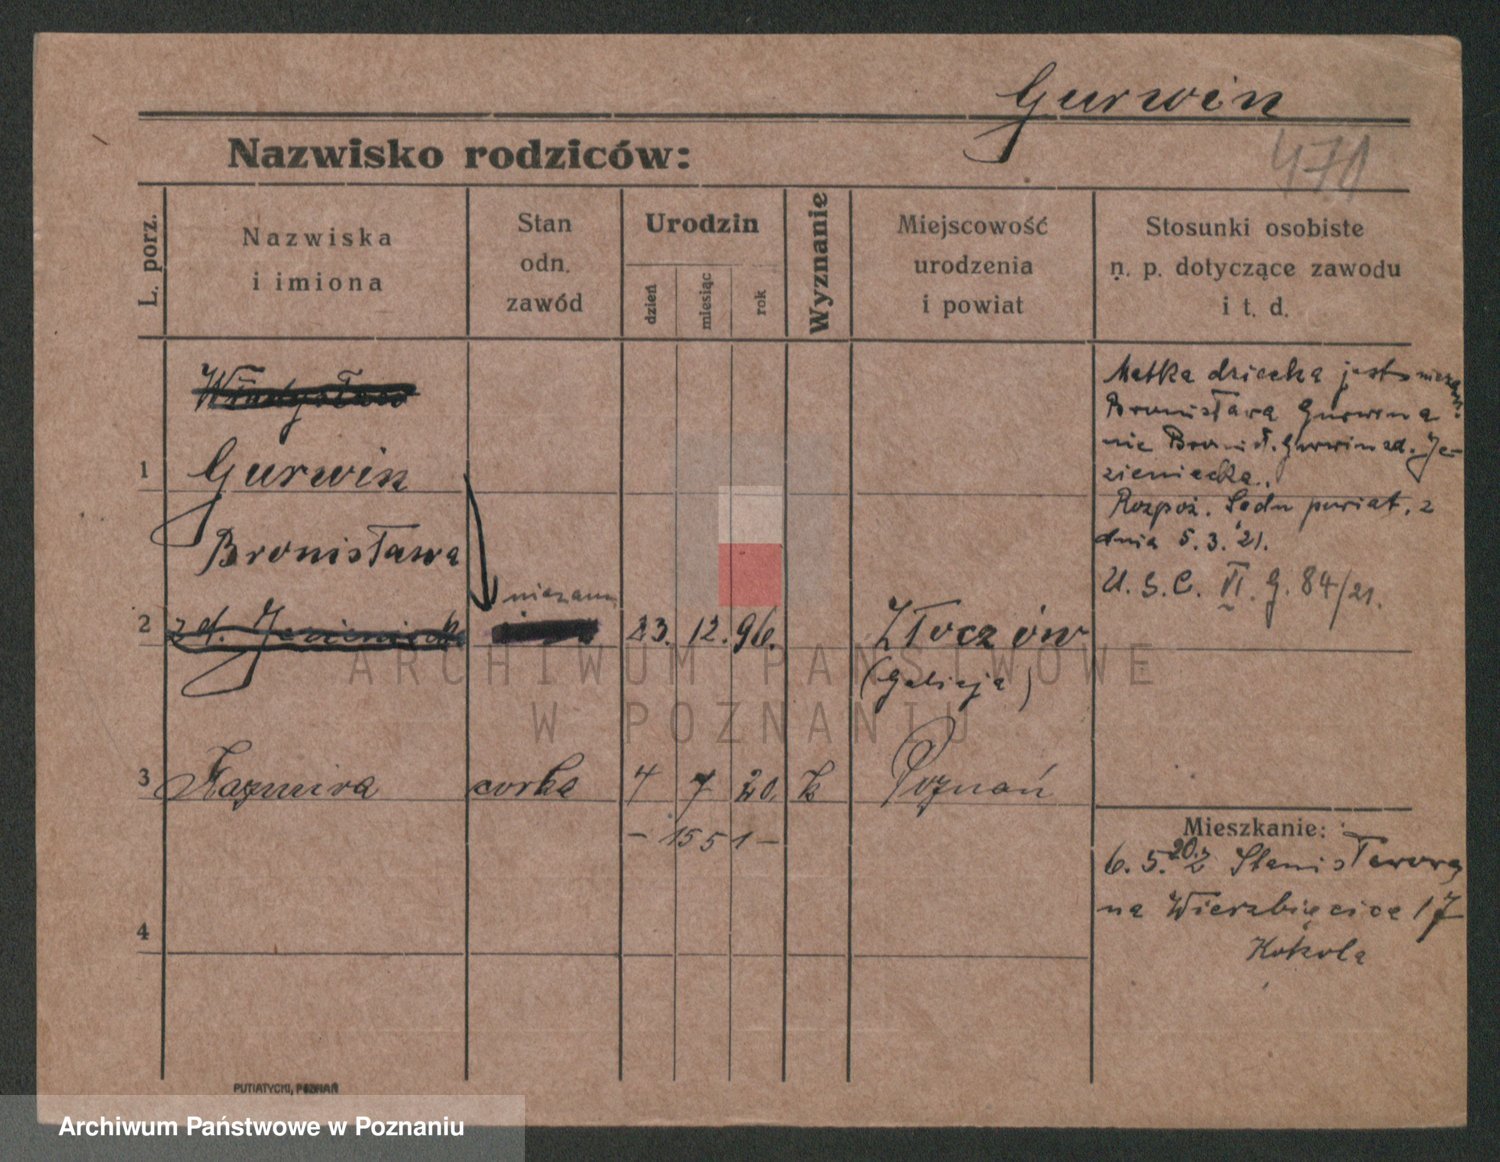 Gurwin
470
Nazwisko rodziców:
L. porz.
Nazwiska
i imiona
Stan
odn.
zawód
Urodzin
dzień
miesiąc
rok
Wyznanie
Miejscowość
urodzenia
i powiat
Stosunki osobiste
n. p. dotyczące zawodu
i t. d.
Władysław
1 Gurwin
Bronisława
niezam
2 zd. Jezieniecka 23. 12. 96. Złoczów
(Galicja)
3 Kazmira corka 4 7 20. k Poznań
- 1551 -
4
Matka dziecka jest niezam.
Bronisława Gurwin a
nie Bronisł. Gurwin zd. Je-
zieniecka.
Rozpoż. Sądu powiat. z
dnia 5.3.21.
U.S.C. VI. g. 84/21.
Mieszkanie:
6. 5. 20. z Stanisławowa
na Wierzbięcice 17
Kokola
PUTIATYCKI, POZNAŃ
ARCHIWUM PAŃSTWOWE
W POZNANIU
Archiwum Państwowe w Poznaniu